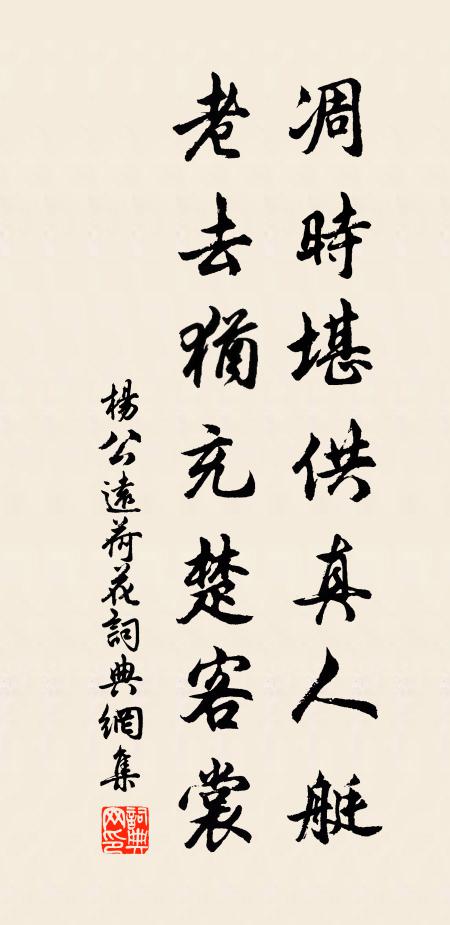 凋時堪供真人艇
老去猶充楚客裳
楊公遠荷花詞典網集
詞典
网印